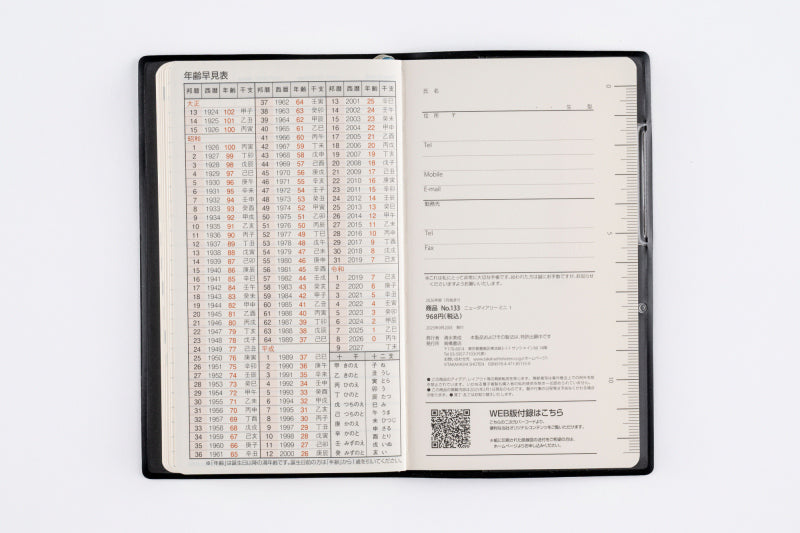 年齢早見表
邦暦 西暦 年齢 干支
大正
13 1924 102 甲子
14 1925 101 乙丑
15 1926 100 丙寅
昭和
1 1926 100 丙寅
2 1927 99 丁卯
3 1928 98 戊辰
4 1929 97 己巳
5 1930 96 庚午
6 1931 95 辛未
7 1932 94 壬申
8 1933 93 癸酉
9 1934 92 甲戌
10 1935 91 乙亥
11 1936 90 丙子
12 1937 89 丁丑
13 1938 88 戊寅
14 1939 87 己卯
15 1940 86 庚辰
16 1941 85 辛巳
17 1942 84 壬午
18 1943 83 癸未
19 1944 82 甲申
20 1945 81 乙酉
21 1946 80 丙戌
22 1947 79 丁亥
23 1948 78 戊子
24 1949 77 己丑
25 1950 76 庚寅
26 1951 75 辛卯
27 1952 74 壬辰
28 1953 73 癸巳
29 1954 72 甲午
30 1955 71 乙未
31 1956 70 丙申
32 1957 69 丁酉
33 1958 68 戊戌
34 1959 67 己亥
35 1960 66 庚子
36 1961 65 辛丑
邦暦 西暦 年齢 干支
37 1962 64 壬寅
38 1963 63 癸卯
39 1964 62 甲辰
40 1965 61 乙巳
41 1966 60 丙午
42 1967 59 丁未
43 1968 58 戊申
44 1969 57 己酉
45 1970 56 庚戌
46 1971 55 辛亥
47 1972 54 壬子
48 1973 53 癸丑
49 1974 52 甲寅
50 1975 51 乙卯
51 1976 50 丙辰
52 1977 49 丁巳
53 1978 48 戊午
54 1979 47 己未
55 1980 46 庚申
56 1981 45 辛酉
57 1982 44 壬戌
58 1983 43 癸亥
59 1984 42 甲子
60 1985 41 乙丑
61 1986 40 丙寅
62 1987 39 丁卯
63 1988 38 戊辰
64 1989 37 己巳
平成
1 1989 37 己巳
2 1990 36 庚午
3 1991 35 辛未
4 1992 34 壬申
5 1993 33 癸酉
6 1994 32 甲戌
7 1995 31 乙亥
8 1996 30 丙子
9 1997 29 丁丑
10 1998 28 戊寅
11 1999 27 己卯
12 2000 26 庚辰
邦暦 西暦 年齢 干支
13 2001 25 辛巳
14 2002 24 壬午
15 2003 23 癸未
16 2004 22 甲申
17 2005 21 乙酉
18 2006 20 丙戌
19 2007 19 丁亥
20 2008 18 戊子
21 2009 17 己丑
22 2010 16 庚寅
23 2011 15 辛卯
24 2012 14 壬辰
25 2013 13 癸巳
26 2014 12 甲午
27 2015 11 乙未
28 2016 10 丙申
29 2017 9 丁酉
30 2018 8 戊戌
31 2019 7 己亥
令和
1 2019 7 己亥
2 2020 6 庚子
3 2021 5 辛丑
4 2022 4 壬寅
5 2023 3 癸卯
6 2024 2 甲辰
7 2025 1 乙巳
8 2026 0 丙午
9 2027 丁未
十干 十二支
甲 きのえ 子 ね
乙 きのと 丑 うし
丙 ひのえ 寅 とら
丁 ひのと 卯 う
戊 つちのえ 辰 たつ
己 つちのと 巳 み
庚 かのえ 午 うま
辛 かのと 未 ひつじ
壬 みずのえ 申 さる
癸 みずのと 酉 とり
戌 いぬ
亥 い
※「年齢」は誕生日以降の満年齢です。誕生日前の方は「年齢」から1歳を引いてください。
氏 名
年 型
住 所 〒
Tel
Mobile
E-mail
勤務先
Tel
Fax
※これは私にとって非常に大切な手帳です。ぬわれた方は誠にお手数ですが、お知らせ
くださいますようお願いいたします。
2026年版 1月始まり
商品 No.133 ニューダイアリー ミニ 1
968円(税込)
WEB版付録はこちら
こちらの二次元バーコードより、
便利な当社オリジナルコンテンツをご覧いただけます。
0
5
10